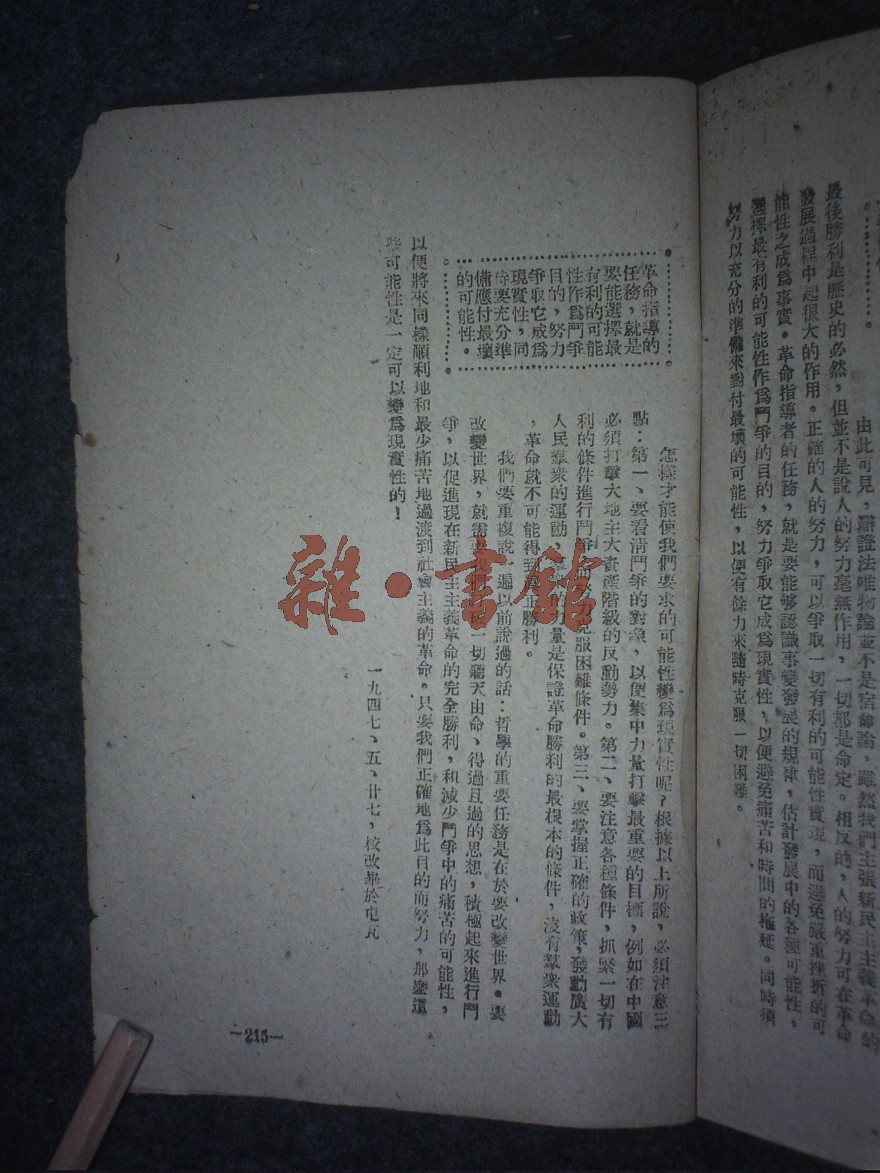 由此可見，辯證法唯物論並不是宿命論，雖然我們主張新民主主義革命的
最後勝利是歷史的必然，但並不是說人的努力毫無作用，一切都是命定。相反的，人的努力可在革命
發展過程中起很大的作用。正確的人的努力，可以爭取一切有利的可能性實現，而避免嚴重挫折的可
能性之成爲事實。革命指導者的任務，就是要能够認識事變發展的規律，估計發展中的各種可能性，
選擇最有利的可能性作爲鬥爭的目的，努力爭取它成爲現實性，以便避免痛苦和時間的拖延。同時須
努力以充分的準備來對付最壞的可能性，以便有餘力來隨時克服一切困難。
革命指導的
任務，就是
要能選擇最
有利的可能
性作爲鬥爭
目的，努力
爭取它成爲
現實性，同
侍要充分準
備應付最壞
的可能性。
怎樣才能使我們要求的可能性變爲現實性呢？根據以上所說，必須注意三
點：第一、要看清鬥爭的對象，以便集中力量打擊最重要的目標，例如在中國
必須打擊大地主大資產階級的反動勢力。第二、要注意各種條件，抓緊一切有
利的條件進行鬥爭，克服困難條件。第三、要掌握正確的政策，發動廣大
人民羣衆的運動，量是保證革命勝利的最根本的條件，沒有羣衆運動
，革命就不可能得到眞正勝利。
我們要重複說一遍以前說過的話：哲學的重要任務是在於要改變世界。要
改變世界，就需要我們一切聽天由命、得過且過的思想，積極起來進行鬥
爭，以促進現在新民主主義革命的完全勝利，和減少鬥爭中的痛苦的可能性，
以便將來同樣順利地和最少痛苦地過渡到社會主義的革命。只要我們正確地爲此目的而努力，那麼這
些可能性是一定可以變爲現實性的！
一九四七、五、廿七，校改畢於屯瓦
—215—
雜·書館